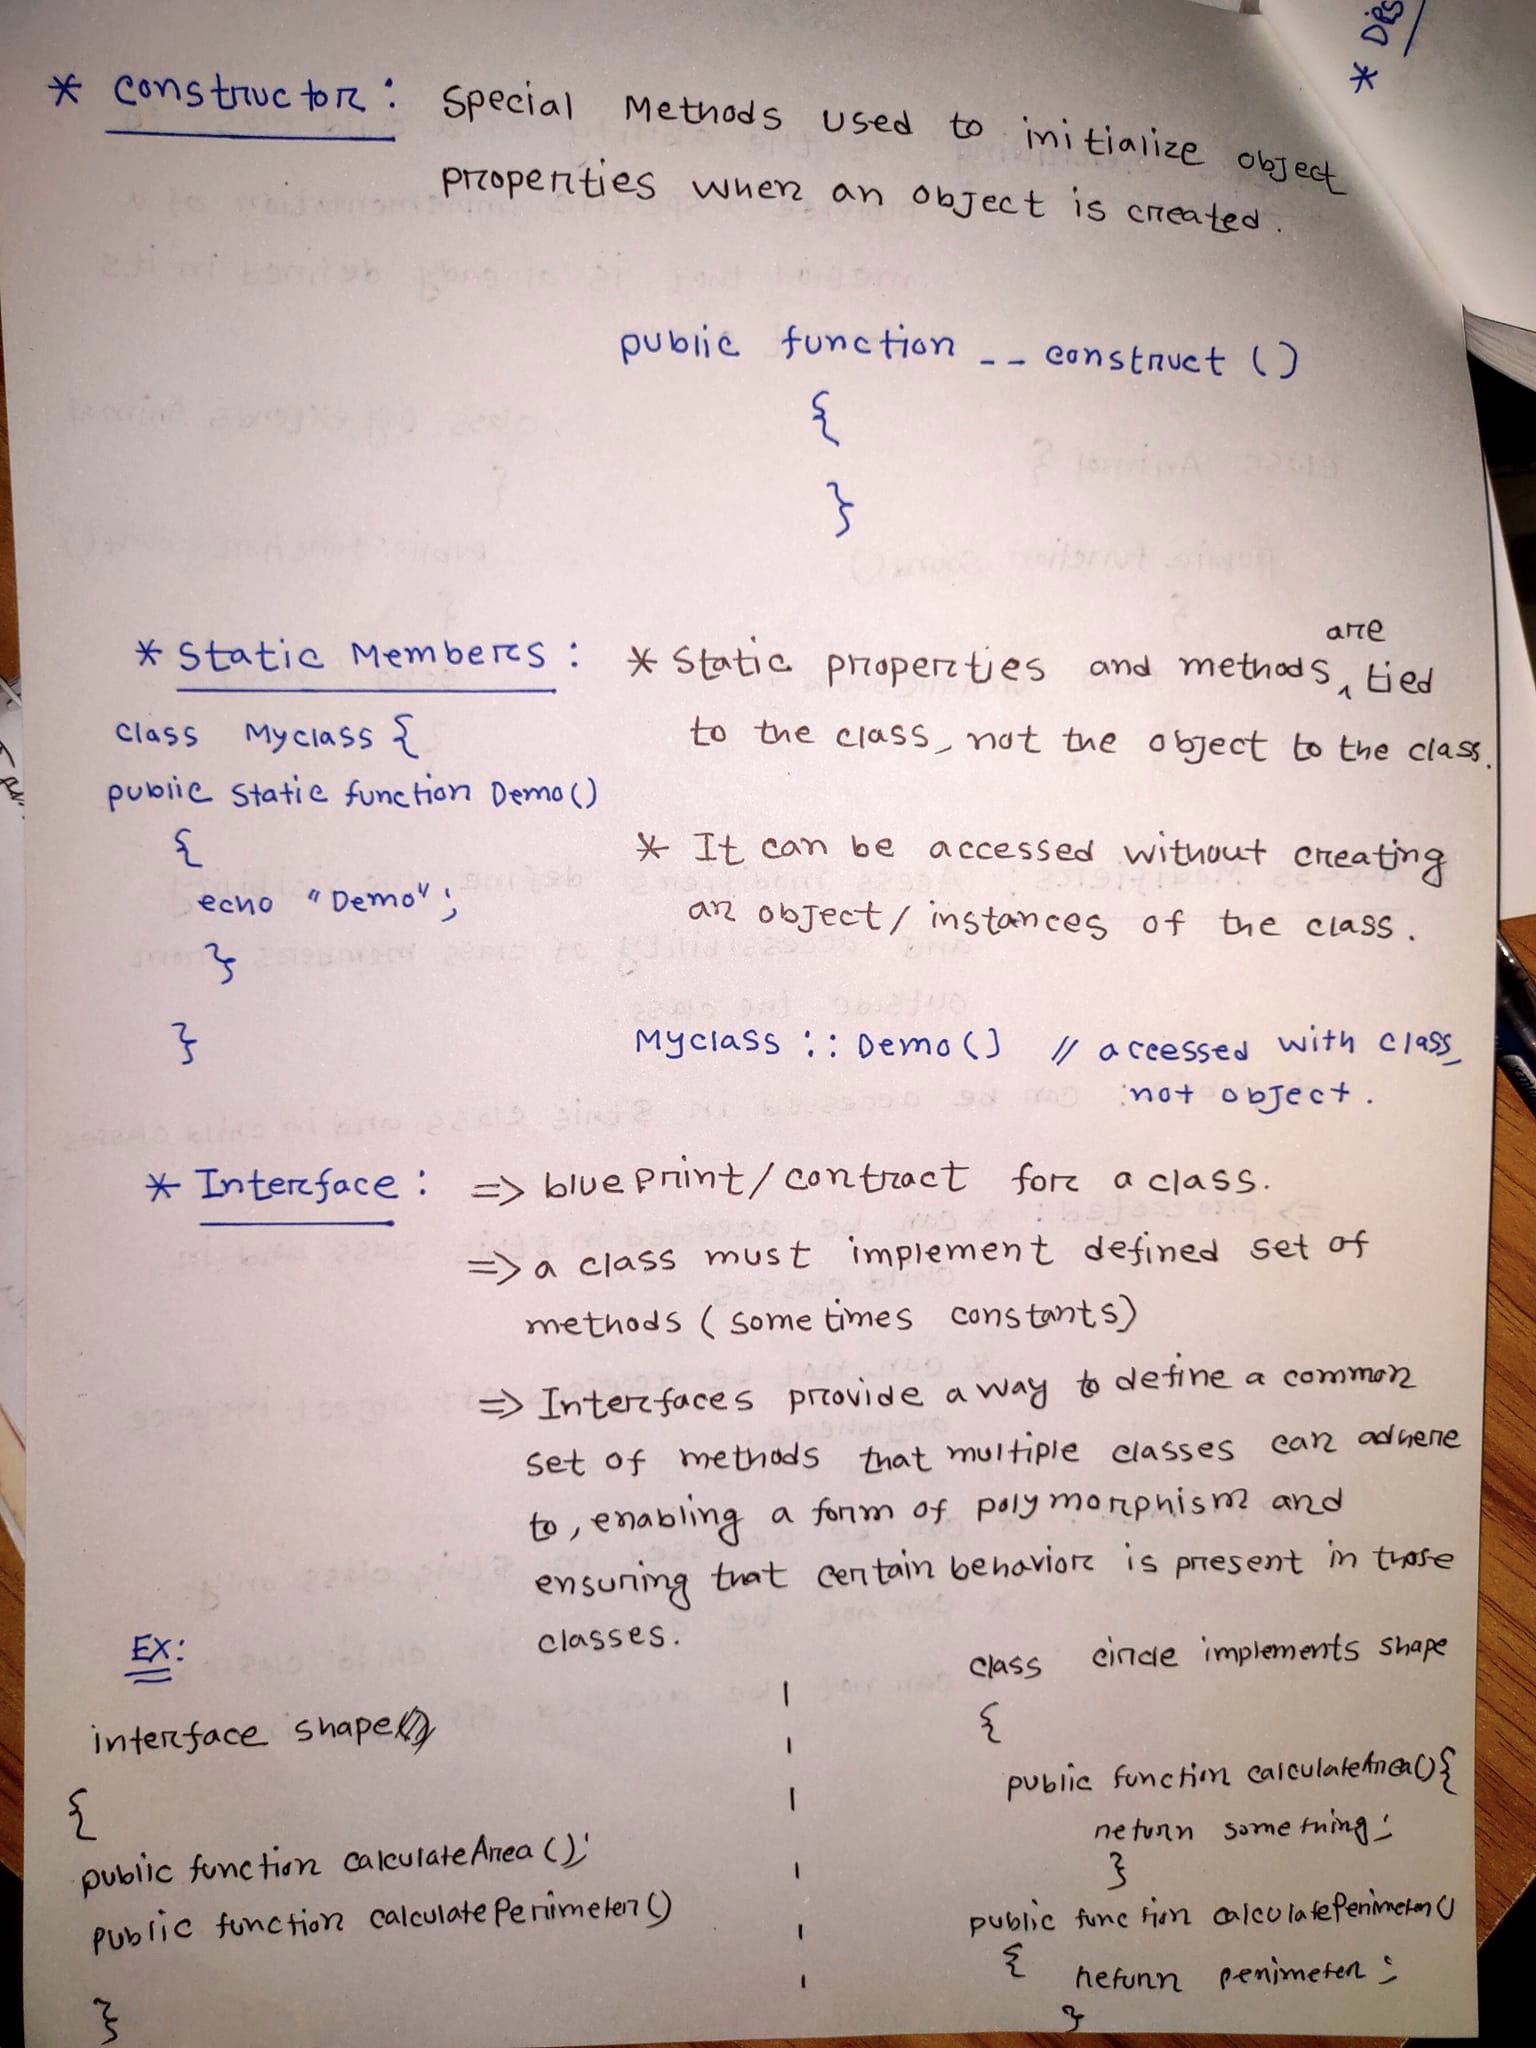 * Constructor: Special Methods used to initialize object
properties when an object is created.
public function __construct ()
{
}
* Static Members:
class Myclass {
public static function Demo()
{
echo "Demo";
}
}
* Static properties and methods are tied
to the class, not the object to the class.
* It can be accessed without creating
an object/instances of the class.
Myclass :: Demo() // accessed with class,
not object.
* Interface: => blueprint/contract for a class.
=> a class must implement defined set of
methods (sometimes constants)
=> Interfaces provide a way to define a common
set of methods that multiple classes can adhere
to, enabling a form of polymorphism and
ensuring that certain behavior is present in those
classes.
EX:
interface shape
{
public function calculateArea();
public function calculatePerimeter()
}
class circle implements shape
{
public function calculateArea(){
return something;
}
public function calculatePerimeter()
{ return perimeter;
}